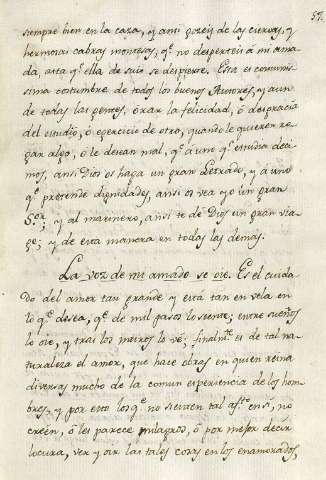 57
siempre bien en la caza, y ansi gozeis de las ciervas, y
hermosas cabras monteses, q.e no desperteis à mi ama-
da, asta q.e ella de suio se despierte. Esta es comunis-
sima costumbre de todos los buenos Autores, y aun
de todas las gentes, orar la felicidad, ò desgracia
del estudio, ò egercicio de otro, quando le quieren ro-
gar algo, ò le desean mal, q.e à uno q.e estudia deci-
mos, ansi Dios os haga un gran Letrado, y à uno
q.e pretende dignidades, ansi os vea yo un gran
S.or, y al marinero, ansi te dè Dios un gran via-
ge; y de esta manera en todas las demas.
La voz de mi amado se oie. Es el cuida-
do del amor tan grande y està tan en vela en
lo q.e desea, q.e de mil pasos lo siente, entre sueños
lo oie, y tras los muros lo vè; finalm.te es de tal na-
turaleza el amor, que hace obras en quien reina
diversas mucho de la comun experiencia de los hom-
bres, y por esto los q.e no sienten tal af.to en sì, no
creèn, ò les parece milagros, ò por mejor decir
locura, ver y oir las tales cosas en los enamorados,